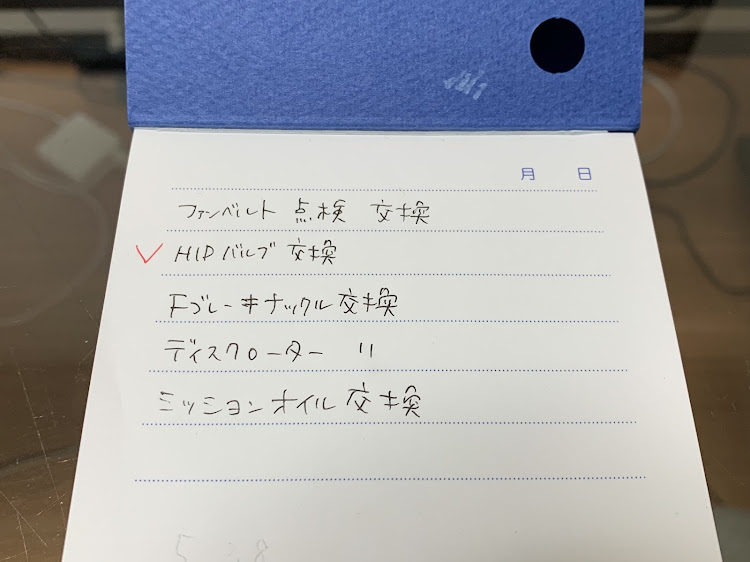 月 日
ファンベルト 点検 交換
HIDバルブ 交換
Fブレーキナックル交換
ディスクローター 〃
ミッションオイル交換